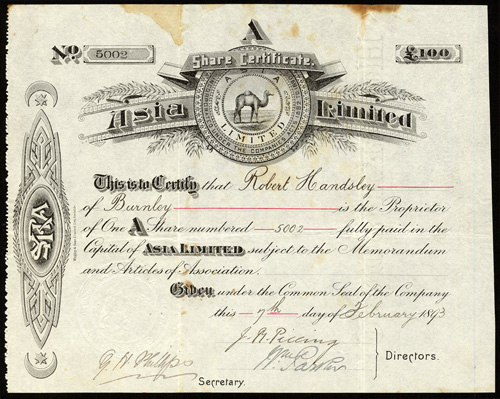 No. 5002
A
£100
Share Certificate.
ASIA
Asia Limited
LIMITED
UNDER THE COMPANIES
This is to Certify that Robert Handsley
of Burnley is the Proprietor
of One A Share numbered 5002 fully paid in the
Capital of ASIA LIMITED subject to the Memorandum
and Articles of Association.
Given under the Common Seal of the Company
this 7th day of February 1893
J. R. Pilling
Wm. Parker
Directors.
G. H. Phillips
Secretary.